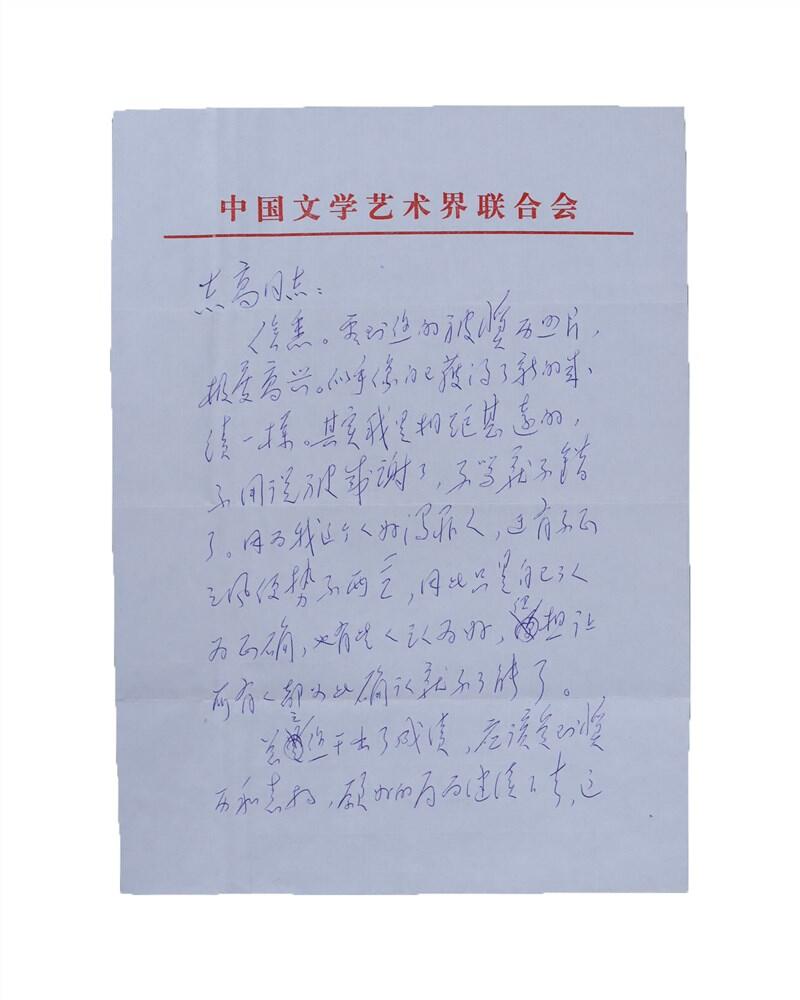 中国文学艺术界联合会
志高同志：
信悉。看到您的被奖励照片，
极爱高兴。似乎像自己获得了新的成
绩一样。其实我是相距甚远的，
不用说被感谢了，不骂就不错
了。因为我这个人好得罪人，还有不正
之风便势不两立，因此只是自己认
为正确，也有些人认为好，但想让
所有人都如此确认就不可能了。
总之您干出了成绩，应该受到奖
和表扬，愿您的